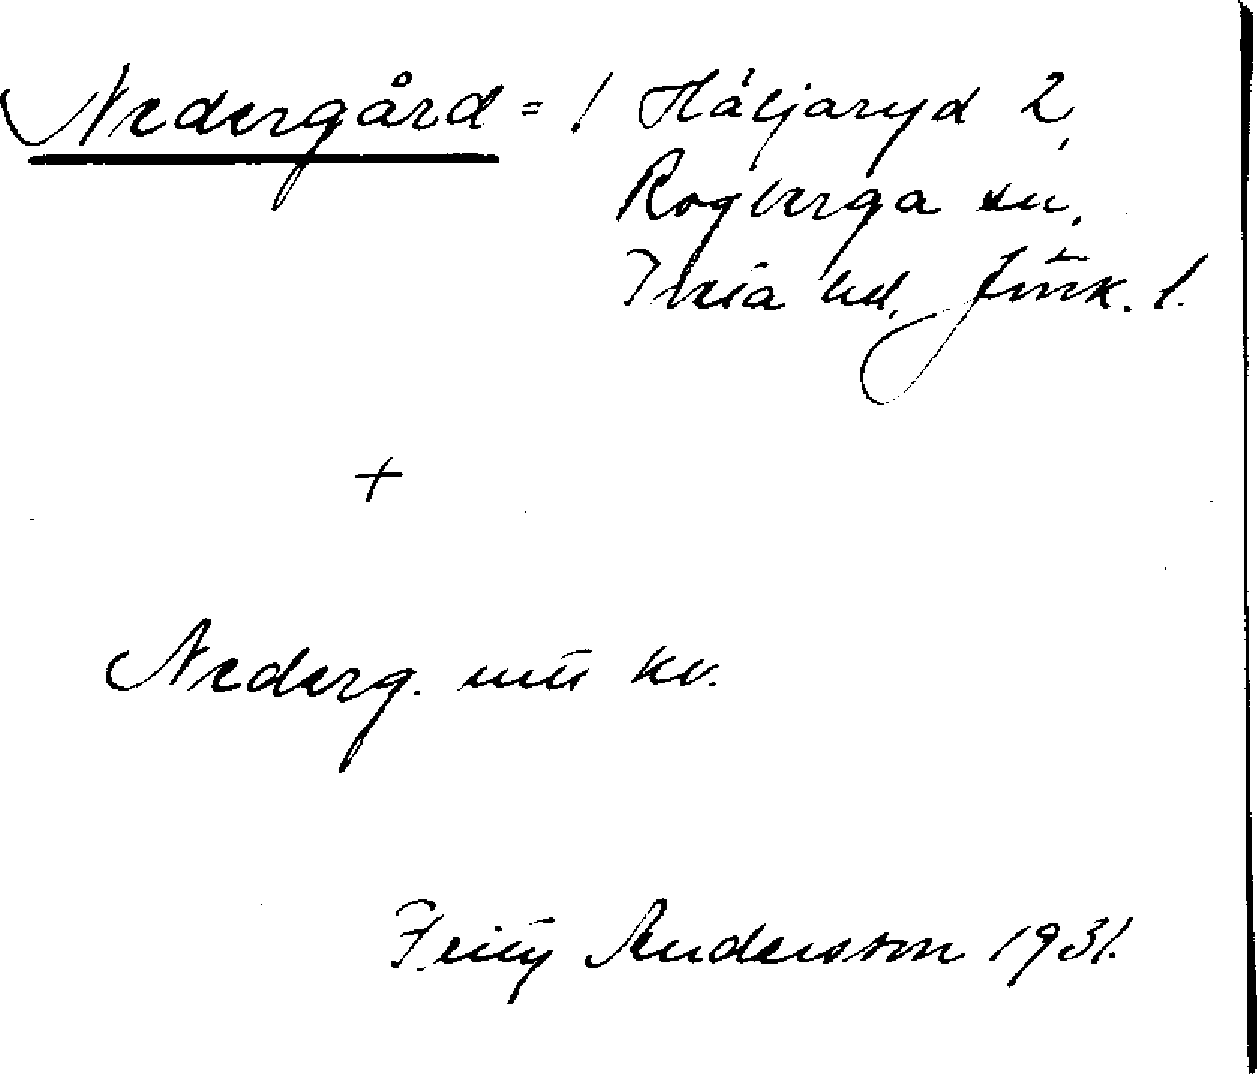 Nedergård = / Häljaryd 2,
Rogberga sn,
Tveta hd, Jönk. l.
+
Nederg. kv.
Andersson 1931.